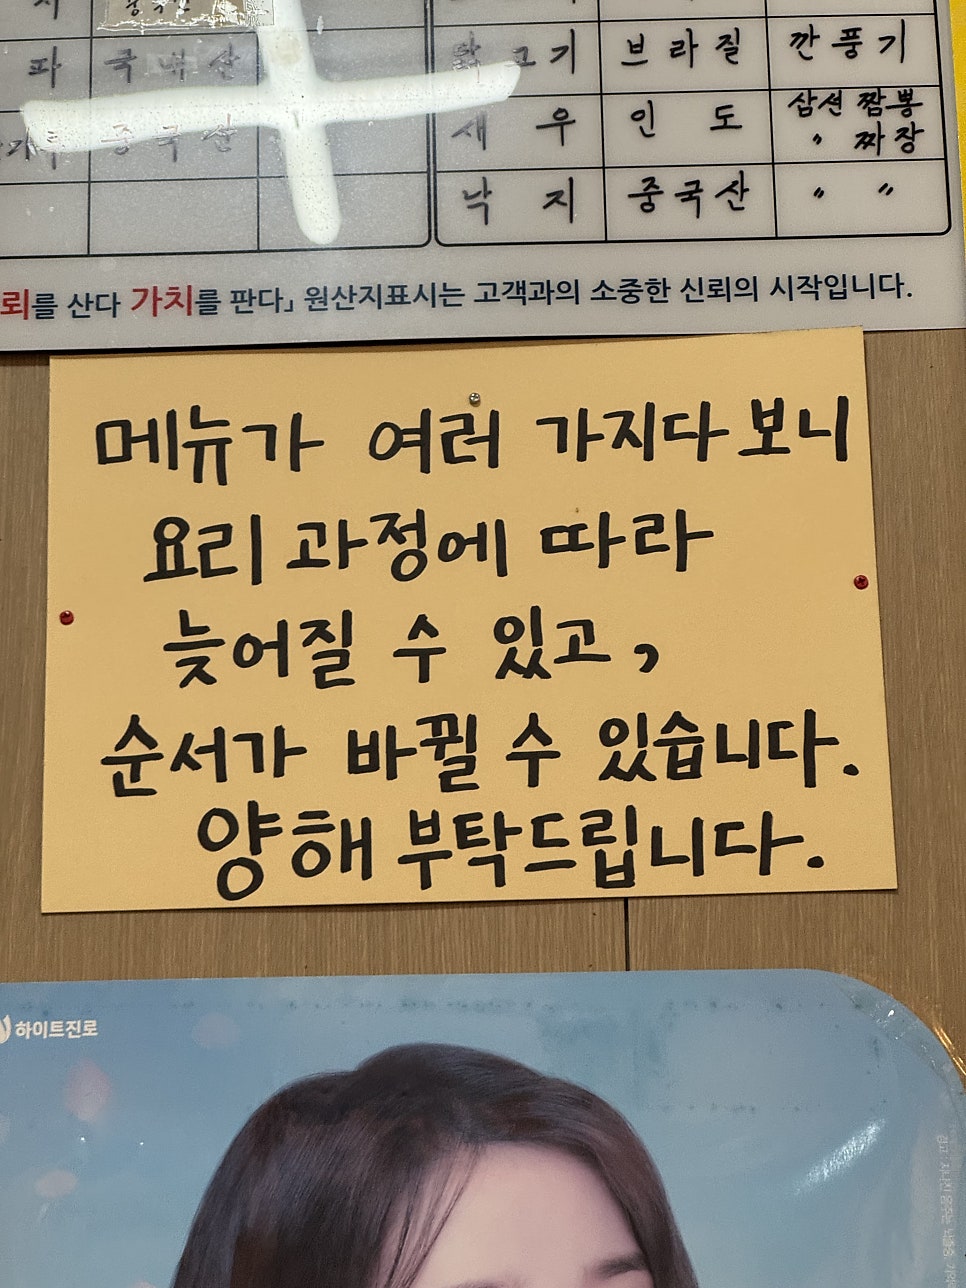 중국산
파 국내산
닭고기 브라질 깐풍기
중국산
새우 인도 삼선 짬뽕
〃 짜장
낙지 중국산 〃 〃
뢰를 산다 가치를 판다」 원산지표시는 고객과의 소중한 신뢰의 시작입니다.
메뉴가 여러 가지다 보니
요리 과정에 따라
늦어질 수 있고,
순서가 바뀔 수 있습니다.
양해 부탁드립니다.
하이트진로